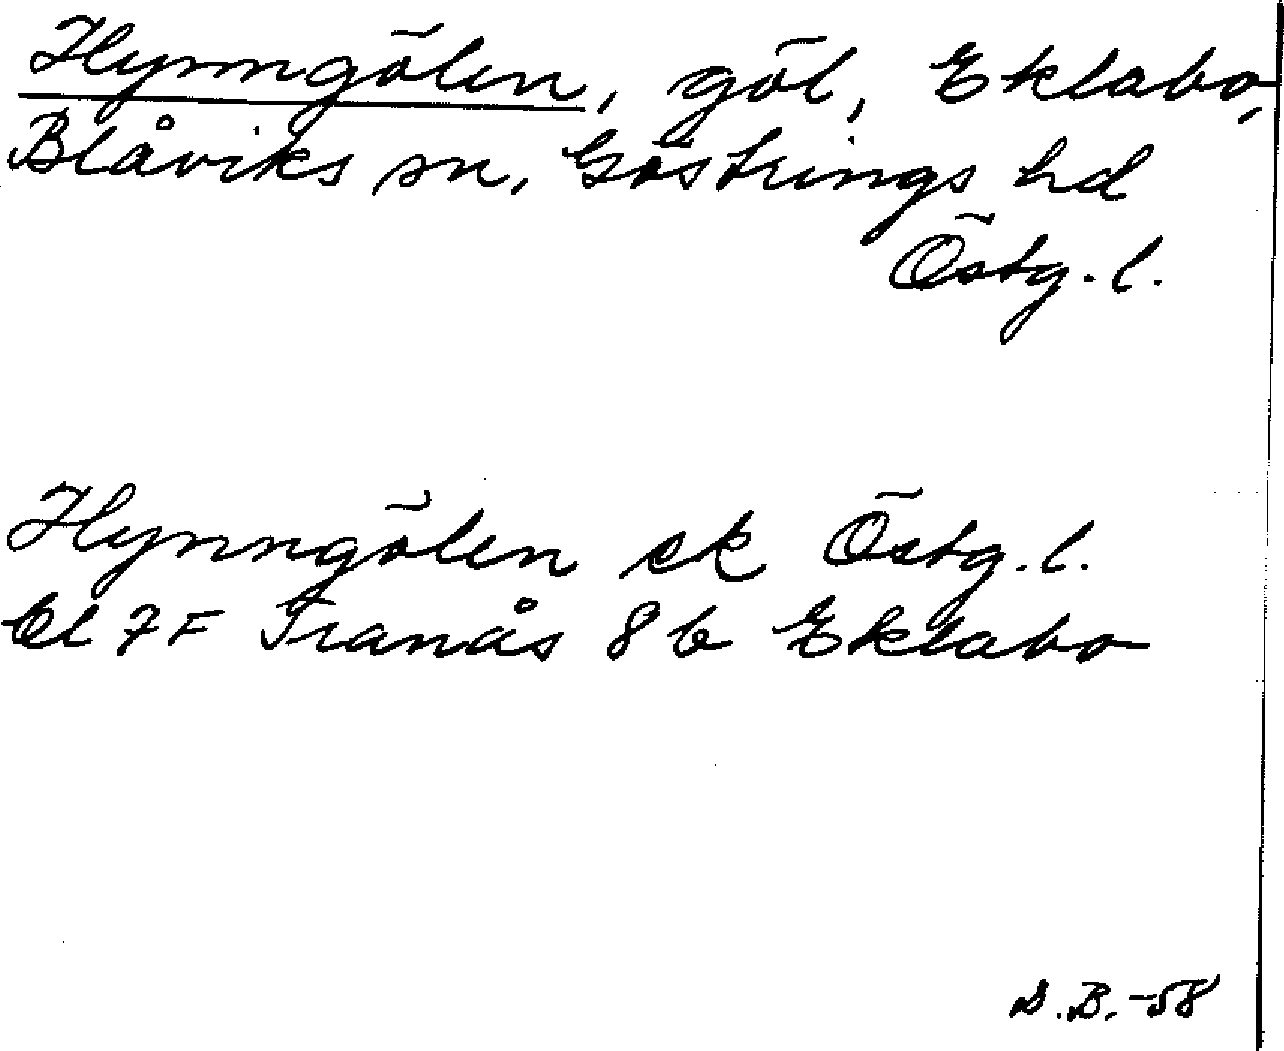 Hynngölen, göl, Eklabo,
Blåviks sn, Göstrings hd
Östg. l.
Hynngölen ek Östg. l.
Bl 7F Tranås 8 b Eklabo
S.B. -58